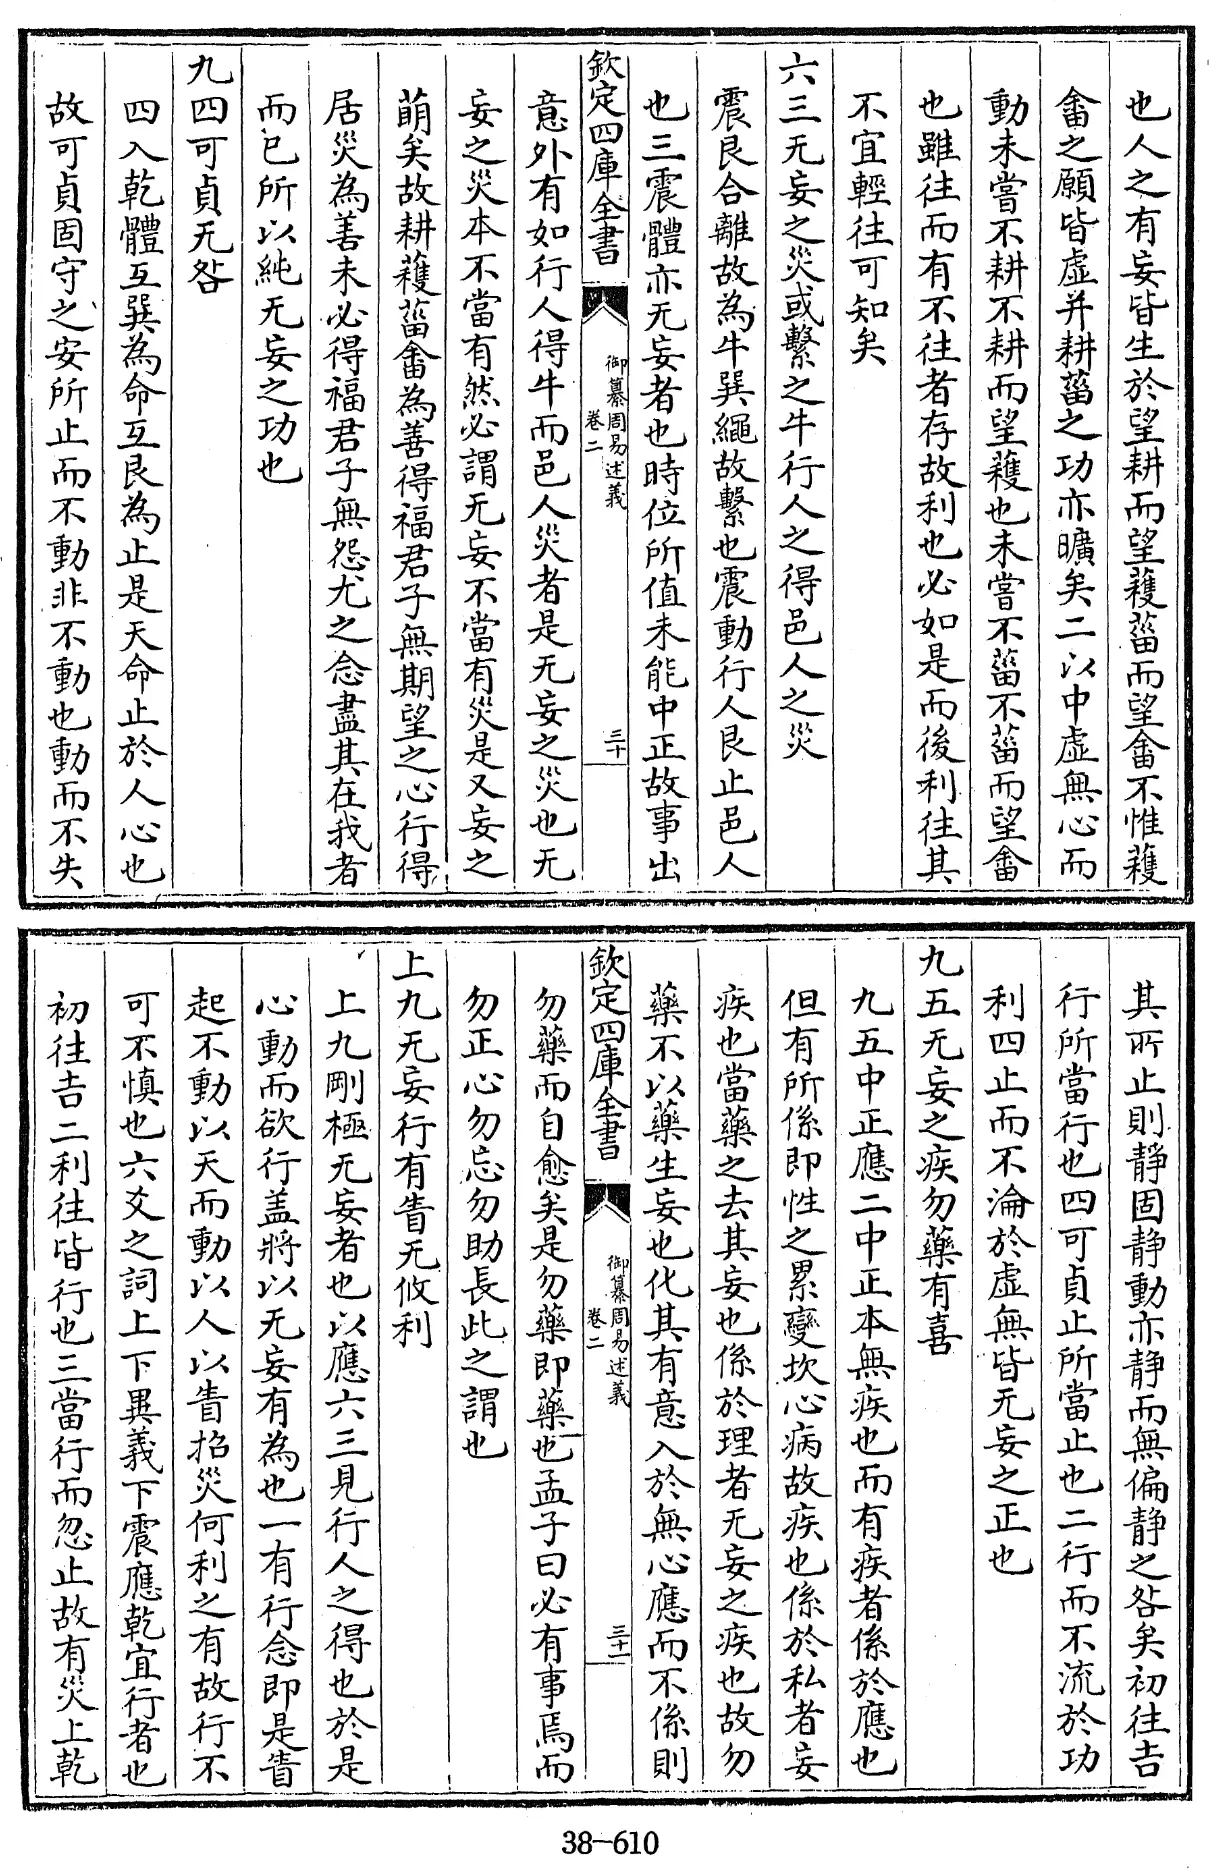 也人之有妄皆生於望耕而望穫菑而望畬不惟穫
畬之願皆虛并耕菑之功亦曠矣二以中虛無心而
動未嘗不耕不耕而望穫也未嘗不菑不菑而望畬
也雖往而有不往者存故利也必如是而後利往其
不宜輕往可知矣
六三无妄之災或繫之牛行人之得邑人之災
震艮合離故為牛巽繩故繫也震動行人艮止邑人
也三震體亦无妄者也時位所值未能中正故事出
欽定四庫全書
御纂周易述義
卷二
三十
意外有如行人得牛而邑人災者是无妄之災也无
妄之災本不當有然必謂无妄不當有災是又妄之
萌矣故耕穫菑畬為善得福君子無期望之心行得
居災為善未必得福君子無怨尤之念盡其在我者
而已所以純无妄之功也
九四可貞无咎
四入乾體互巽為命互艮為止是天命止於人心也
故可貞固守之安所止而不動非不動也動而不失
其所止則靜固靜動亦靜而無偏靜之咎矣初往吉
行所當行也四可貞止所當止也二行而不流於功
利四止而不淪於虛無皆无妄之正也
九五无妄之疾勿藥有喜
九五中正應二中正本無疾也而有疾者係於應也
但有所係即性之累變坎心病故疾也係於私者妄
疾也當藥之去其妄也係於理者无妄之疾也故勿
藥不以藥生妄也化其有意入於無心應而不係則
欽定四庫全書
御纂周易述義
卷二
三十一
勿藥而自愈矣是勿藥即藥也孟子曰必有事焉而
勿正心勿忘勿助長此之謂也
上九无妄行有眚无攸利
上九剛極无妄者也以應六三見行人之得也於是
心動而欲行盖將以无妄有為也一有行念即是眚
起不動以天而動以人以眚招災何利之有故行不
可不慎也六爻之詞上下異義下震應乾宜行者也
初往吉二利往皆行也三當行而忽止故有災上乾
38-610